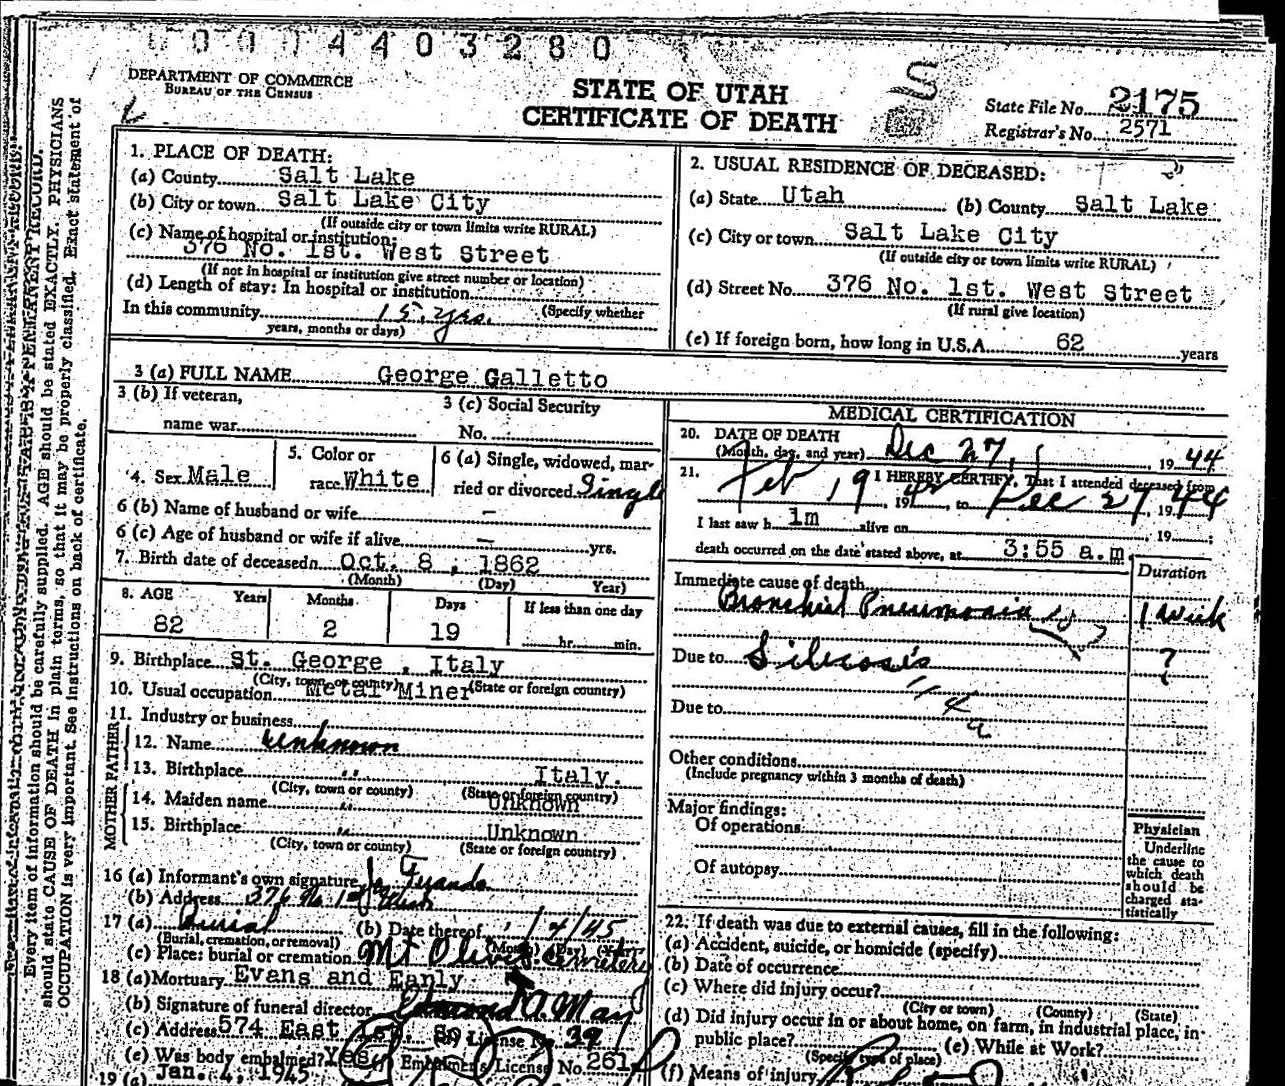 0 0 0 1 4 4 0 3 2 8 0
DEPARTMENT OF COMMERCE
BUREAU OF THE CENSUS
STATE OF UTAH
CERTIFICATE OF DEATH
S
State File No. 2175
Registrar's No. 2571
Every item of information should be carefully supplied. AGE should be stated EXACTLY. PHYSICIANS
should state CAUSE OF DEATH in plain terms, so that it may be properly classified. Exact statement of
OCCUPATION is very important. See instructions on back of certificate.
1. PLACE OF DEATH:
(a) County Salt Lake
(b) City or town Salt Lake City
(If outside city or town limits write RURAL)
(c) Name of hospital or institution:
376 No. 1st. West Street
(If not in hospital or institution give street number or location)
(d) Length of stay: In hospital or institution
In this community 15 yrs. (Specify whether
years, months or days)
2. USUAL RESIDENCE OF DECEASED:
(a) State Utah (b) County Salt Lake
(c) City or town Salt Lake City
(If outside city or town limits write RURAL)
(d) Street No. 376 No. 1st. West Street
(If rural give location)
(e) If foreign born, how long in U.S.A. 62 years
3 (a) FULL NAME George Galletto
3 (b) If veteran,
name war
3 (c) Social Security
No.
4. Sex Male
5. Color or
race White
6 (a) Single, widowed, mar-
ried or divorced Single
6 (b) Name of husband or wife -
6 (c) Age of husband or wife if alive - yrs.
7. Birth date of deceased Oct. 8, 1862
(Month) (Day) Year)
8. AGE Years Months Days If less than one day
82 2 19 hr. min.
9. Birthplace St. George, Italy
(City, town or county) (State or foreign country)
10. Usual occupation Metal Miner
11. Industry or business
FATHER
12. Name Unknown
13. Birthplace " Italy.
(City, town or county) (State or foreign country)
MOTHER
14. Maiden name " Unknown
15. Birthplace " Unknown
(City, town or county) (State or foreign country)
16 (a) Informant's own signature
(b) Address 376 No. 1st West
17 (a) Burial (b) Date thereof 1/4/45
(Burial, cremation, or removal) (Month) (Day) (Year)
(c) Place: burial or cremation Mt Olivet Cemetery
18 (a) Mortuary Evans and Early
(b) Signature of funeral director Edmond A. May
(c) Address 574 East 1st. So. License No. 39
(e) Was body embalmed? Yes (f) Embalmer's License No. 261
19 (a) Jan. 4, 1945
MEDICAL CERTIFICATION
20. DATE OF DEATH
(Month, day, and year) Dec 27, 1944
21. I HEREBY CERTIFY, That I attended deceased from
Feb 19, 1942, to Dec 27, 1944
I last saw h im alive on 19 ;
death occurred on the date stated above, at 3:55 a.m.
Duration
Immediate cause of death
Bronchial Pneumonia 1 week
Due to Silicosis ?
Due to
Other conditions
(Include pregnancy within 3 months of death)
Major findings:
Of operations
Of autopsy
Physician
Underline
the cause to
which death
should be
charged sta-
tistically
22. If death was due to external causes, fill in the following:
(a) Accident, suicide, or homicide (specify)
(b) Date of occurrence
(c) Where did injury occur?
(City or town) (County) (State)
(d) Did injury occur in or about home, on farm, in industrial place, in
public place? (e) While at Work?
(Specify type of place)
(f) Means of injury